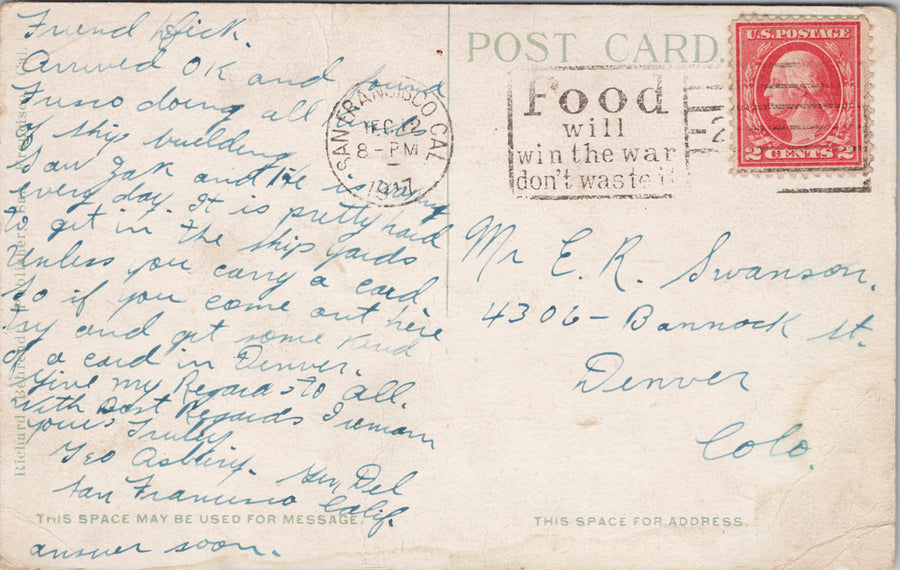 Friend Dick.
Arrived OK and found
Frisco doing all kinds
of ship building.
Saw Zak and He is
every day. It is pretty hard
to get in the ship yards
Unless you carry a card
So if you come out here
try and get some kind
of a card in Denver.
Give my Regards to all.
With Best Regards I remain
yours Truly
Geo Asbury. Gen Del
San Francisco Calif.
THIS SPACE MAY BE USED FOR MESSAGE.
answer soon.
Richard Behrendt, Publisher, San Francisco, Cal.
POST CARD.
SAN FRANCISCO CAL
DEC 12
8-PM
1917
Food
will
win the war
don't waste it
U.S. POSTAGE
2 CENTS 2
Mr E. R. Swanson.
4306- Bannock St.
Denver
Colo.
THIS SPACE FOR ADDRESS.